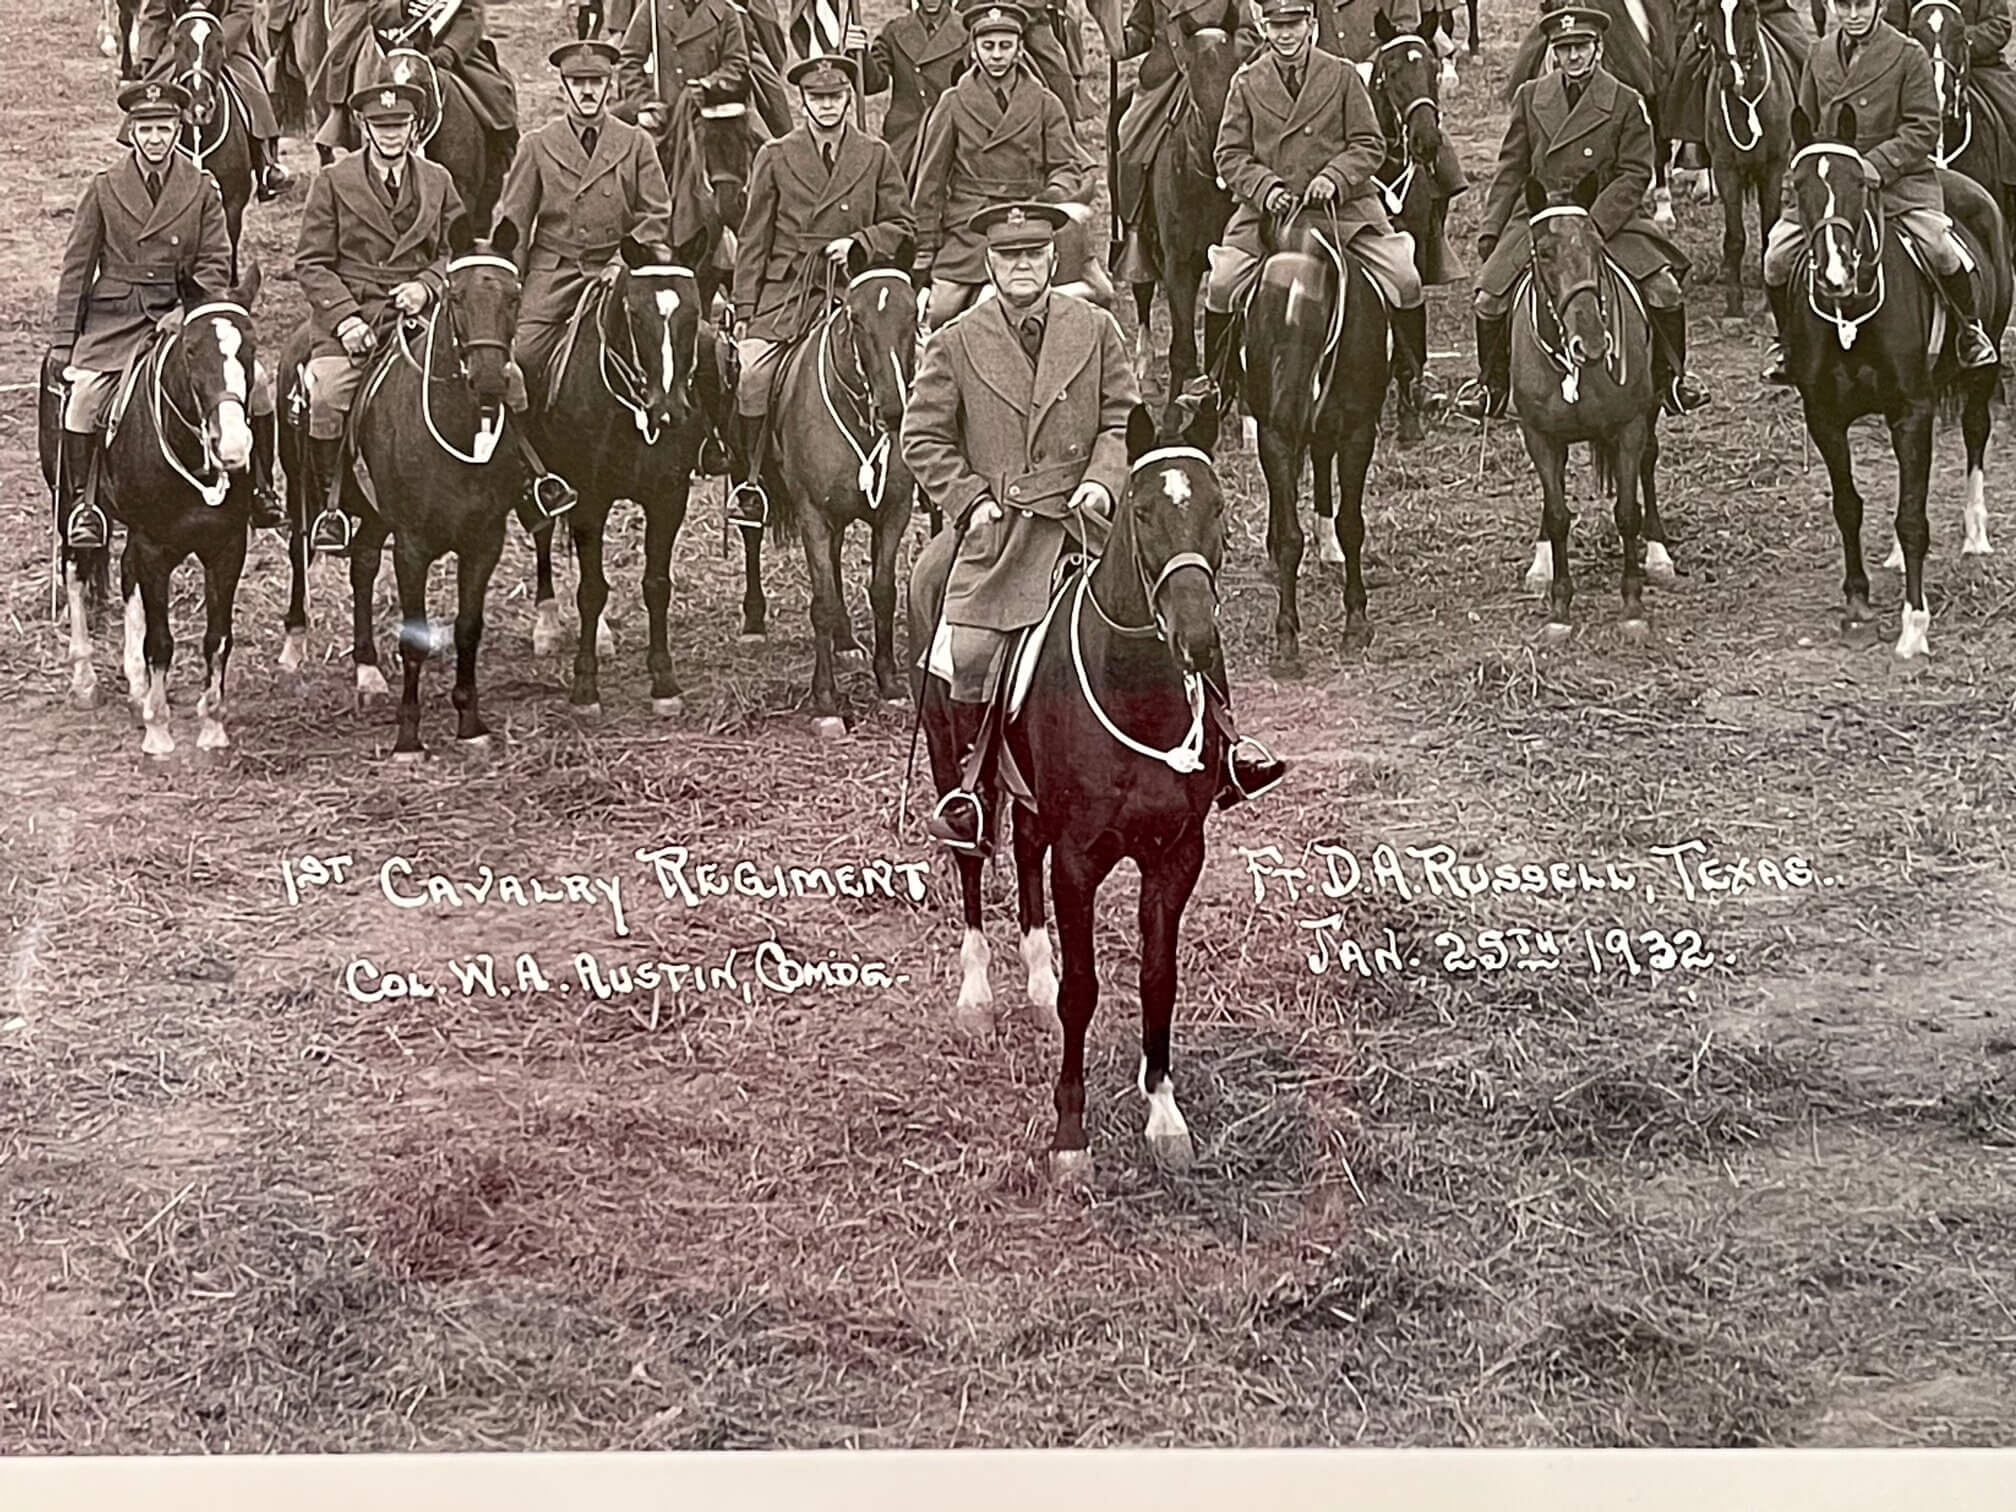 1ST CAVALRY REGIMENT
COL. W. A. AUSTIN, COM'D'G.
FT. D. A. RUSSELL, TEXAS.
JAN. 25TH 1932.